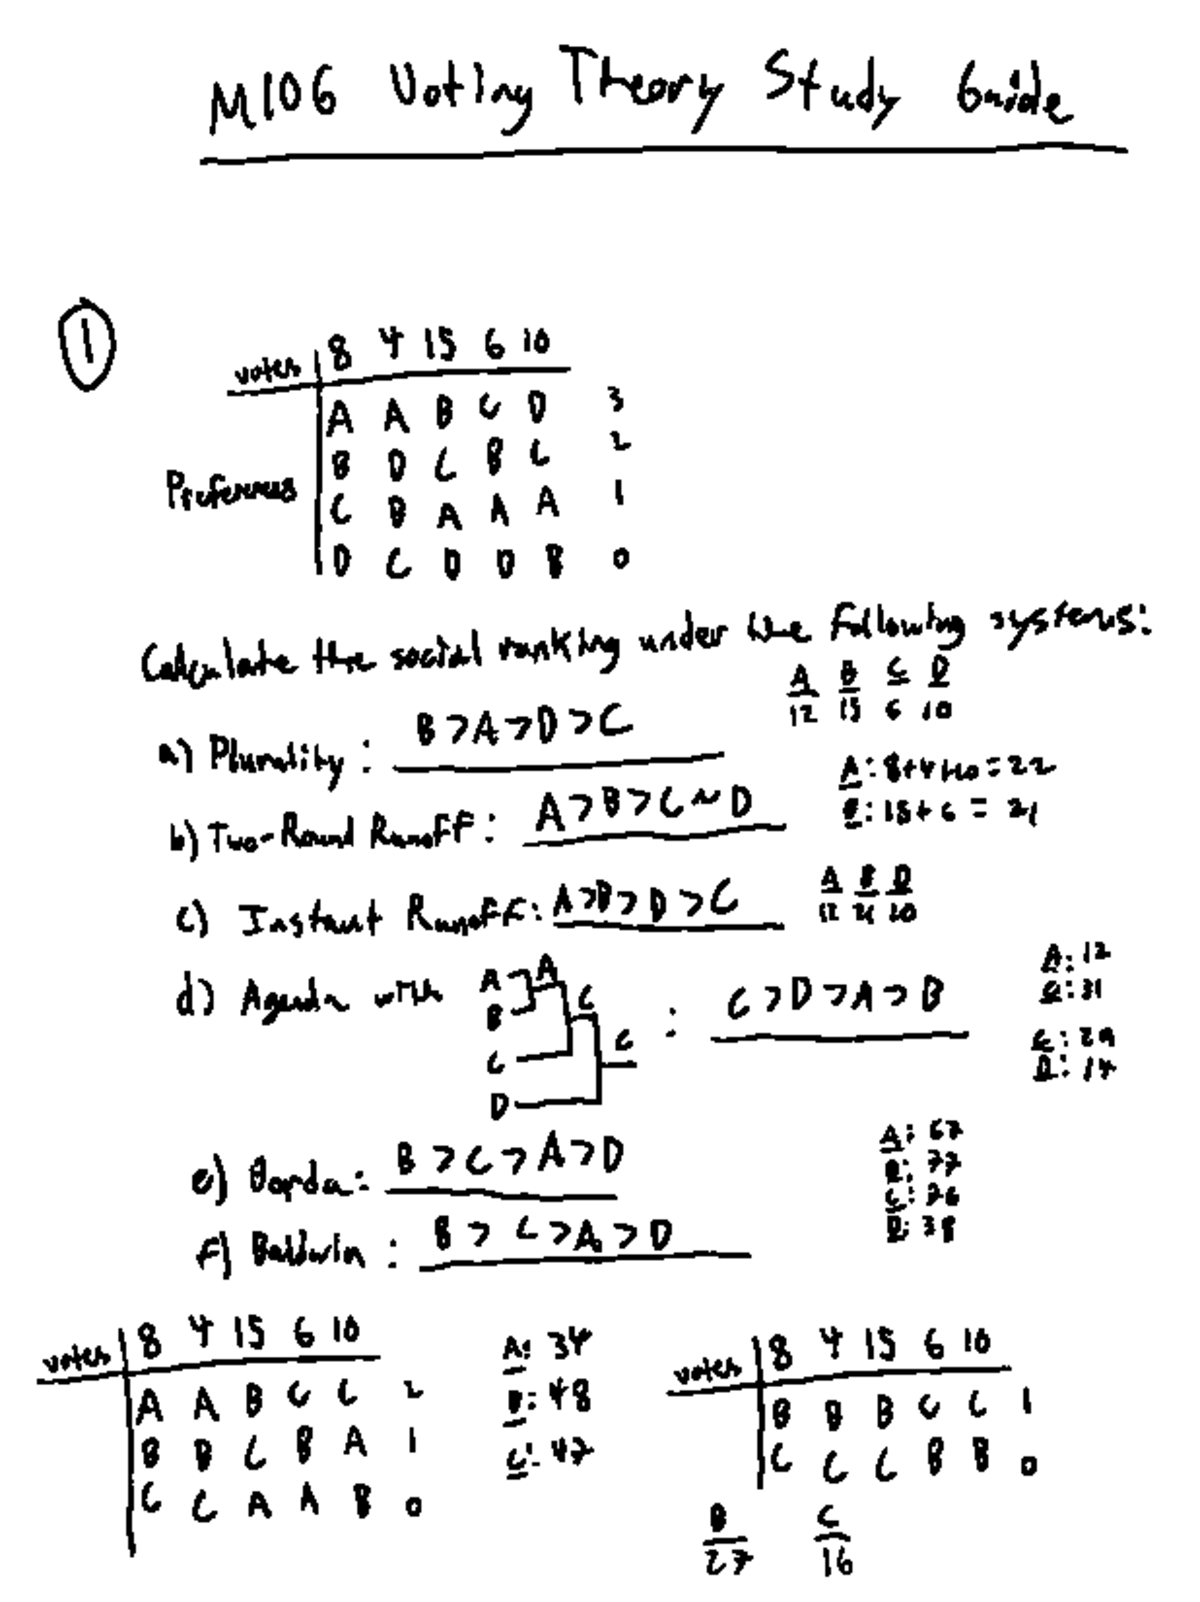 M106 Voting Theory Study Guide
①
votes 8 4 15 6 10
A A B C D 3
B D C B C 2
Preferences
C B A A A 1
D C D D B 0
Calculate the social ranking under the following systems:
A B C D
12 15 6 10
a) Plurality: B>A>D>C
A: 8+4+10=22
B: 15+6=21
b) Two-Round Runoff: A>B>C~D
A B D
12 21 10
c) Instant Runoff: A>B>D>C
d) Agenda with A B A C C D C : C>D>A>B
A: 12
C: 31
C: 29
D: 14
e) Borda: B>C>A>D
A: 67
B: 77
C: 76
D: 38
f) Baldwin: B>C>A>D
votes 8 4 15 6 10
A A B C C 2
B B C B A 1
C C A A B 0
A: 34
B: 48
C: 47
votes 8 4 15 6 10
B B B C C 1
C C C B B 0
B C
27 16